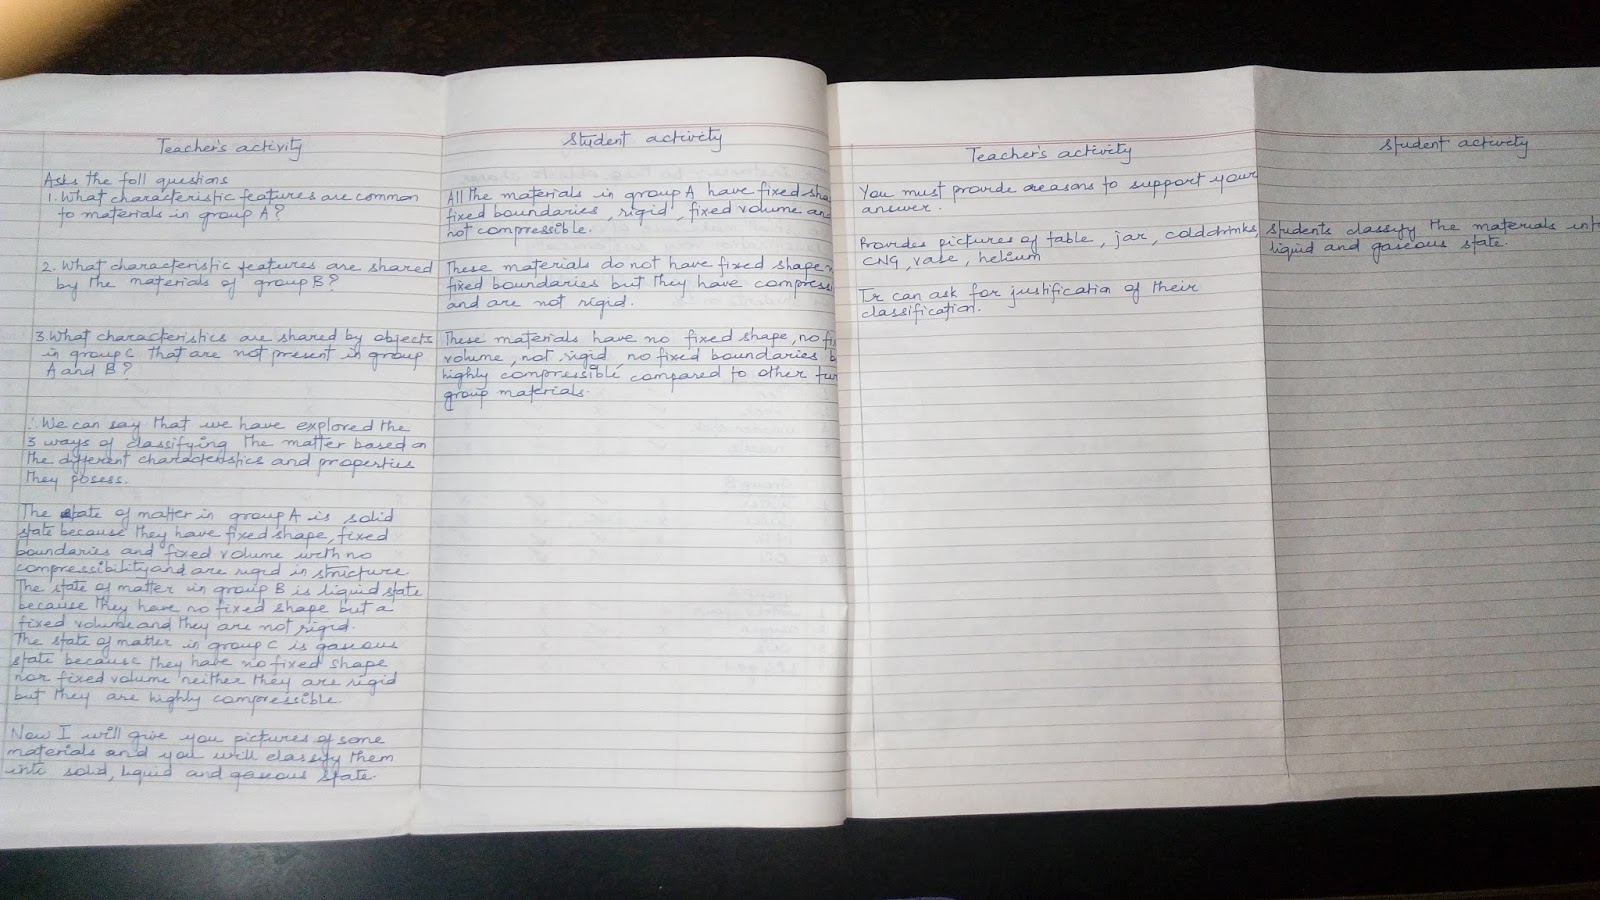 Teacher's activity
Asks the foll questions
1. What characteristic features are common
to materials in group A?
2. What characteristic features are shared
by the materials of group B?
3. What characteristics are shared by objects
in group C that are not present in group
A and B?
∴ We can say that we have explored the
3 ways of classifying the matter based on
the different characteristics and properties
they posess.
The state of matter in group A is solid
state because they have fixed shape, fixed
boundaries and fixed volume with no
compressibility and are rigid in structure.
The state of matter in group B is liquid state
because they have no fixed shape but a
fixed volume and they are not rigid.
The state of matter in group C is gaseous
state because they have no fixed shape
nor fixed volume neither they are rigid
but they are highly compressible.
Now I will give you pictures of some
materials and you will classify them
into solid, liquid and gaseous state.
Student activity
All the materials in group A have fixed sha
fixed boundaries, rigid, fixed volume and
not compressible.
These materials do not have fixed shape n
fixed boundaries but they have compress
and are not rigid.
These materials have no fixed shape, no fi
volume, not rigid, no fixed boundaries b
highly compressible compared to other
group materials.
Teacher's activity
You must provide reasons to support your
answer.
Provides pictures of table, jar, colddrinks,
CNG, vase, helium
Tr can ask for justification of their
classification.
Student activity
Students classify the materials into
liquid and gaseous state.